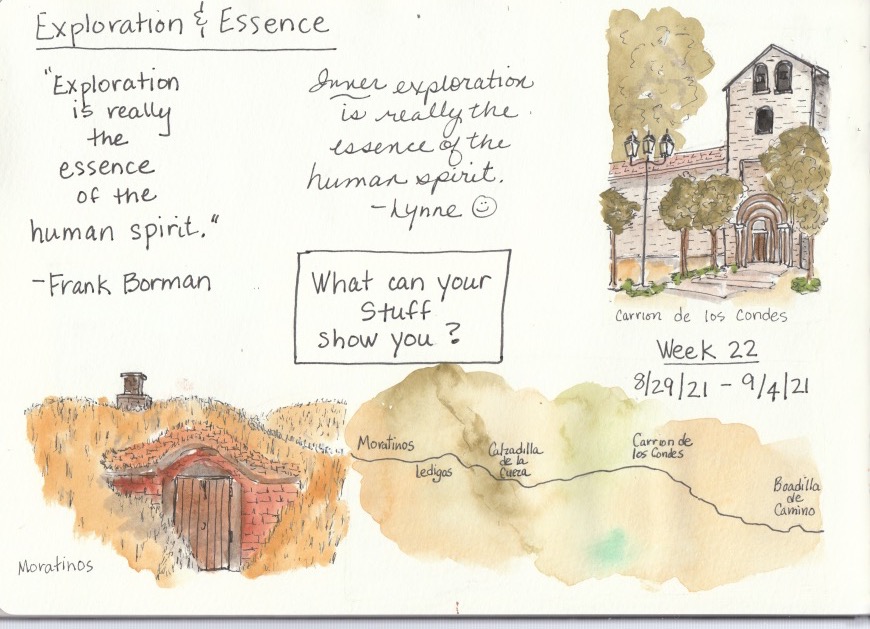 Exploration & Essence
"Exploration
is really
the
essence
of the
human spirit."
-Frank Borman
Inner exploration
is really the
essence of the
human spirit.
-Lynne ☺
What can your
Stuff
show you?
Carrion de los Condes
Week 22
8/29/21 - 9/4/21
Moratinos
Moratinos
Ledigas
Calzadilla
de la
Cueza
Carrion de
los Condes
Boadilla
de
Camino